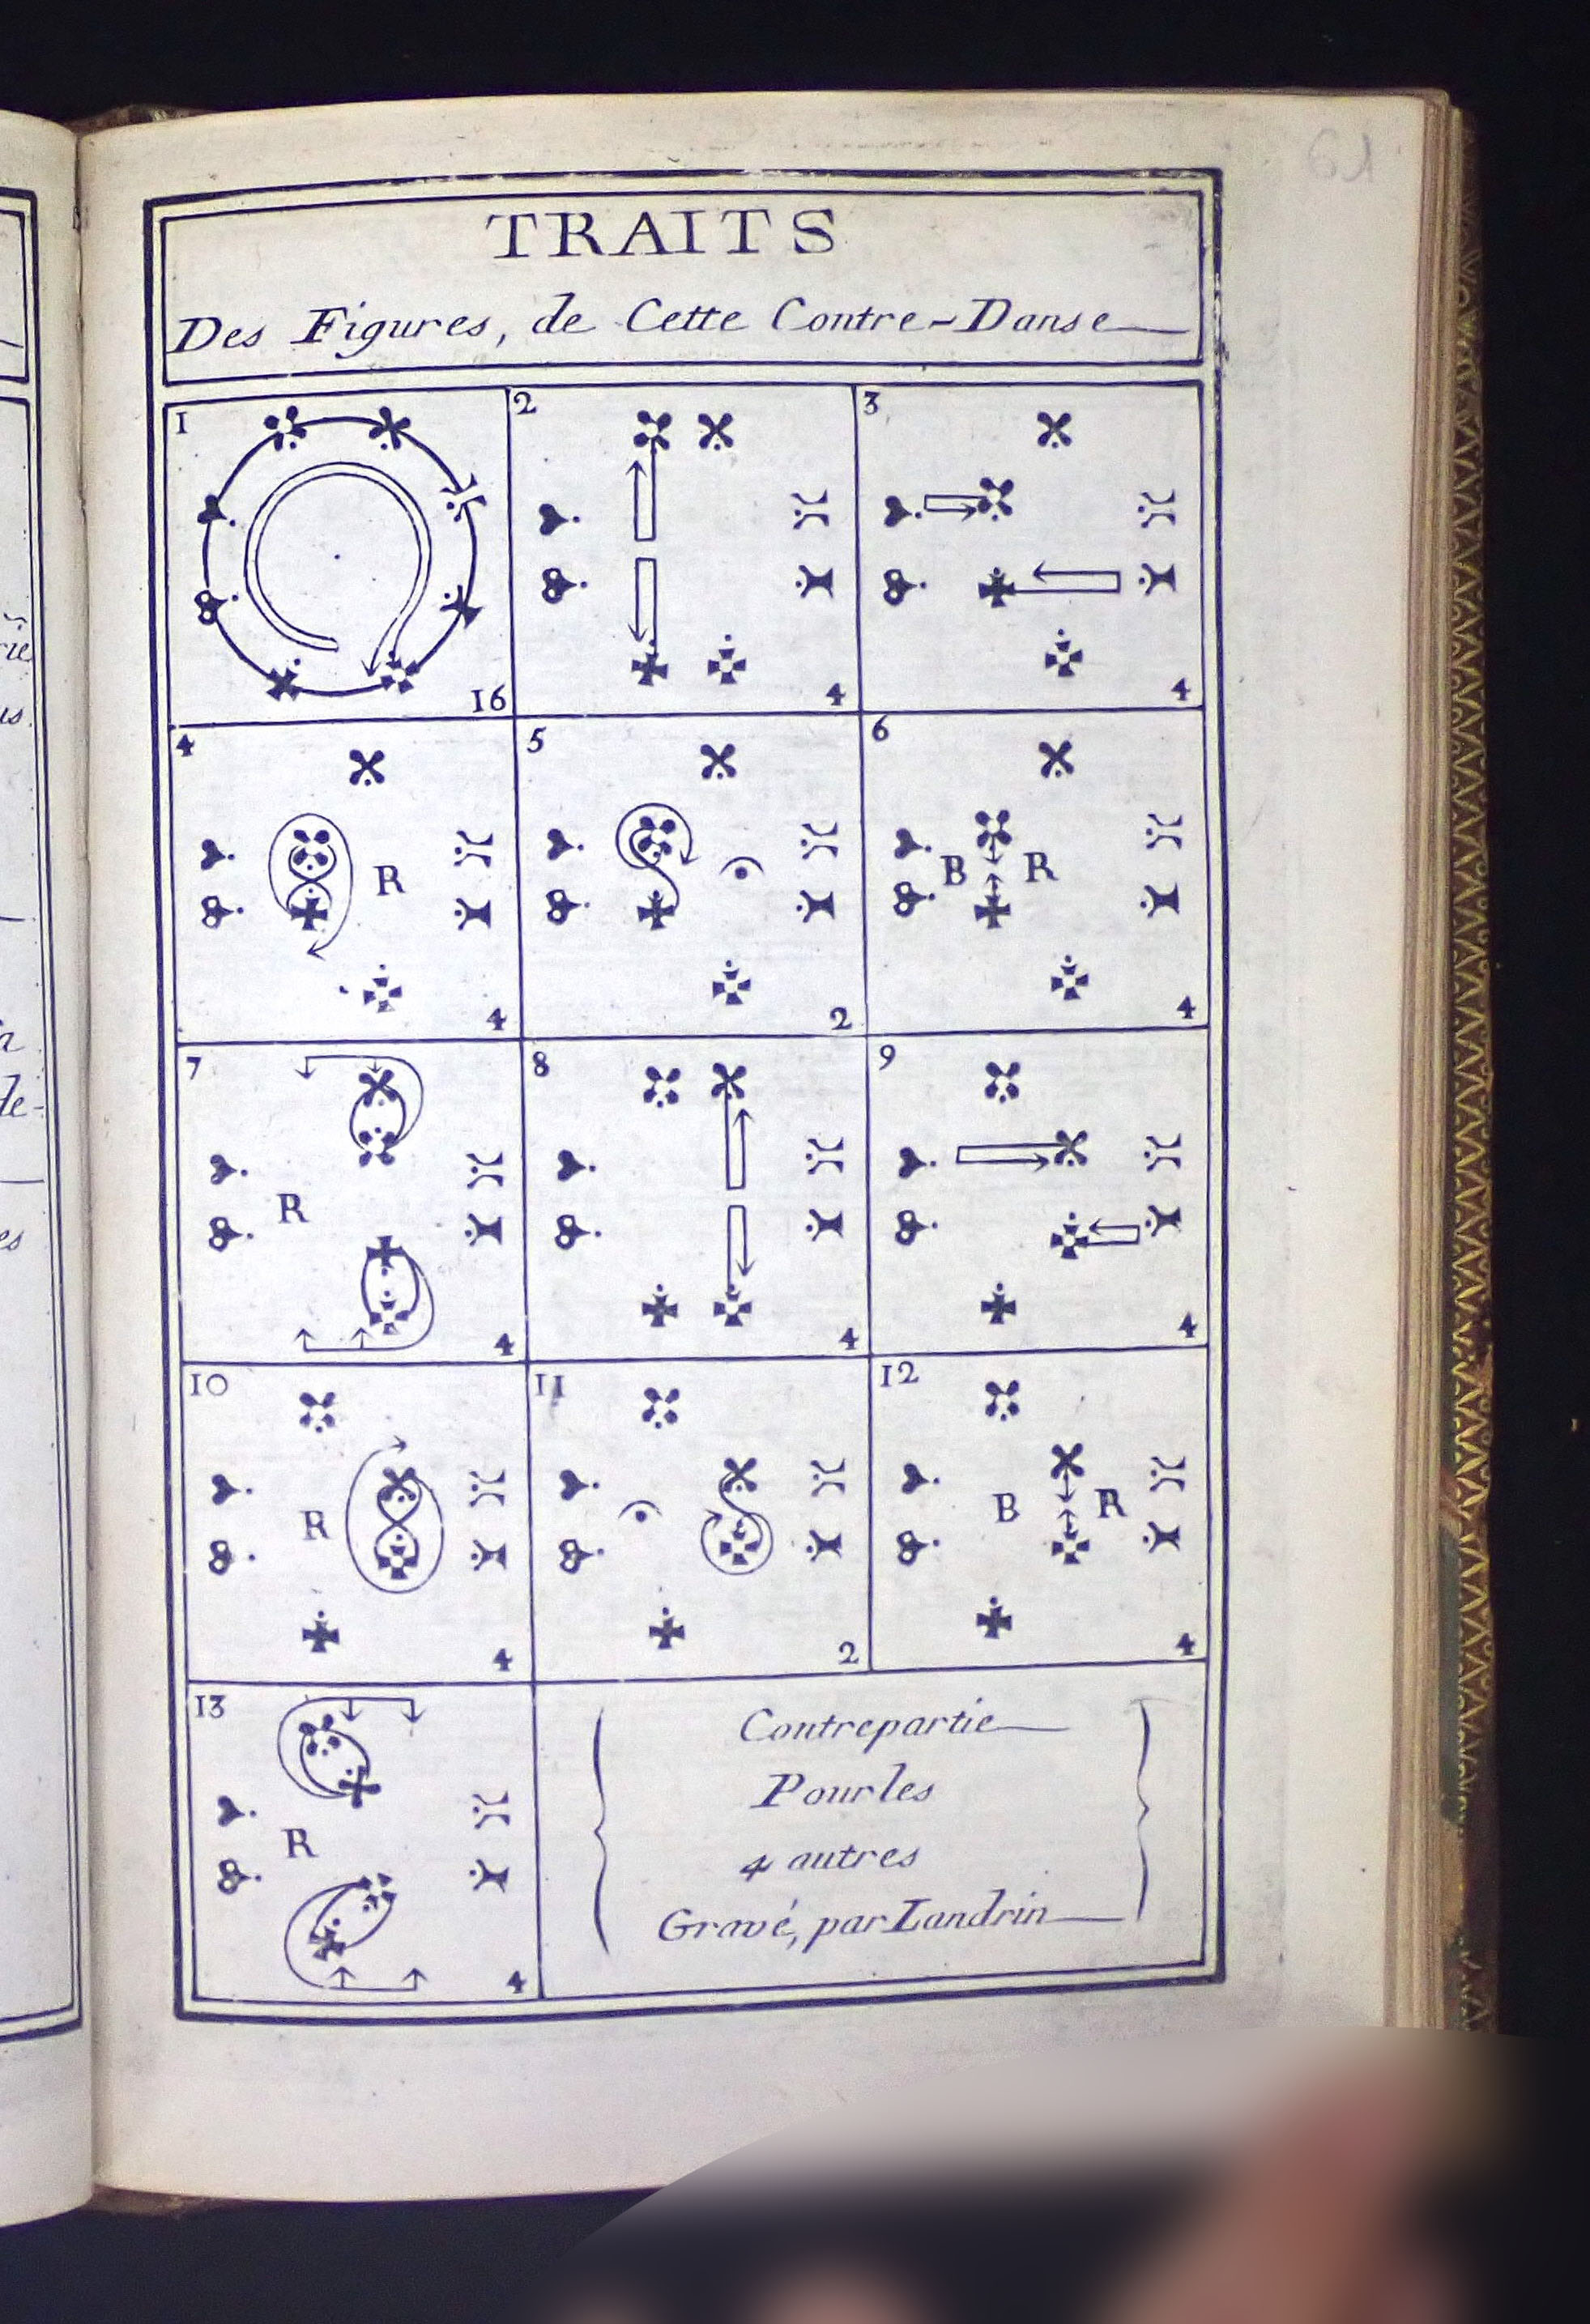 TRAITS
Des Figures, de Cette Contre-Danse
1
16
2
4
3
4
4
R
4
5
2
6
B R
4
7
R
4
8
4
9
4
10
R
4
11
2
12
B R
4
13
R
4
Contrepartie
Pour les
4 autres
Gravé, par Landrin